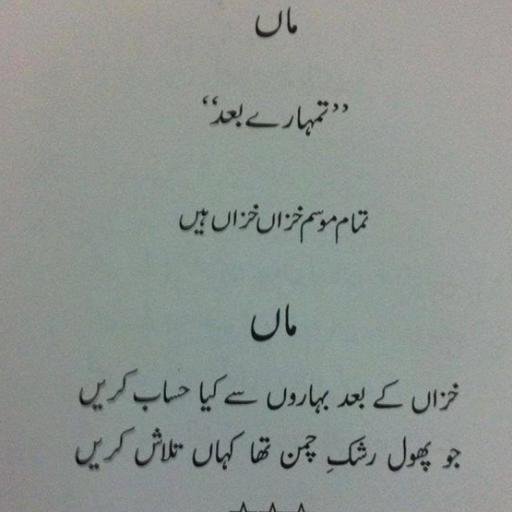 ماں
’’تمہارے بعد‘‘
تمام موسم خزاں خزاں ہیں
ماں
خزاں کے بعد بہاروں سے کیا حساب کریں
جو پھول رشکِ چمن تھا کہاں تلاش کریں